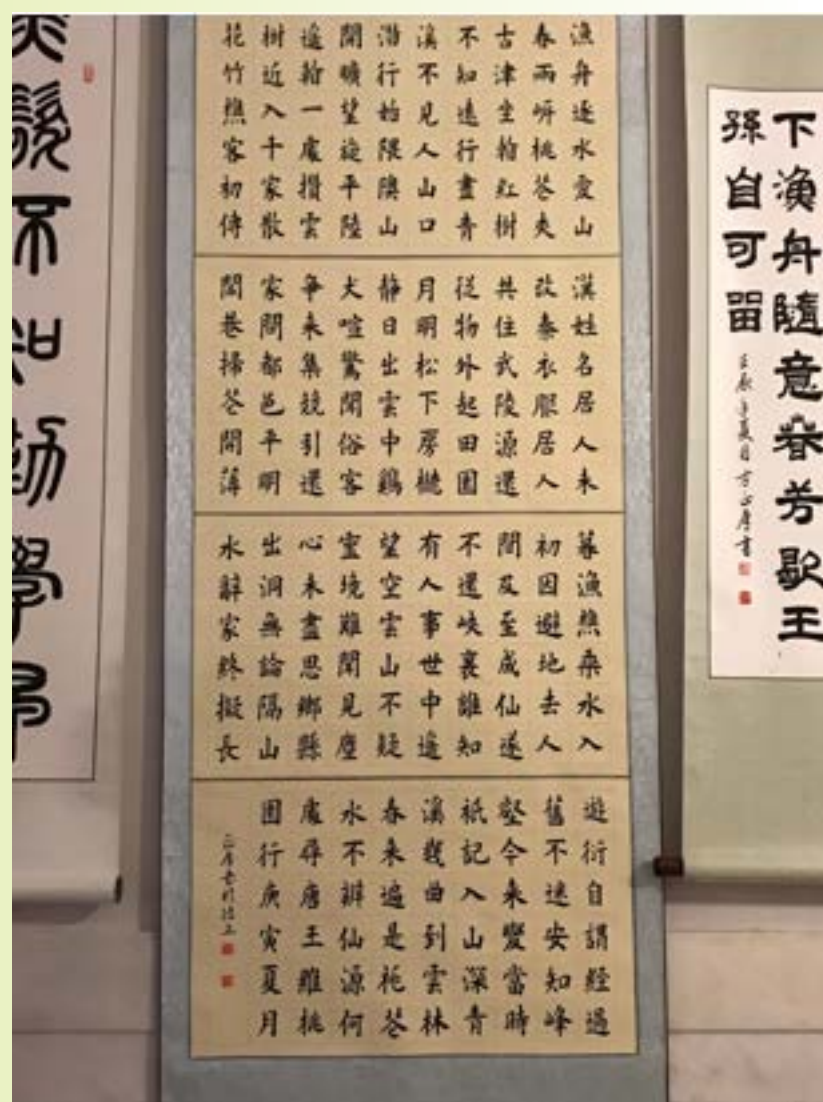 下漁舟隨意春芳歇王
孫自可留
壬辰年夏月方正厚書
漁舟逐水愛山
春兩岍桃花夾
古津坐看紅樹
不知遠行盡青
溪不見人山口
潛行始隈隩山
開曠望旋平陸
遥看一處攢雲
樹近入千家散
花竹樵客初傳
漢姓名居人未
改秦衣服居人
共住武陵源還
從物外起田園
月明松下房櫳
靜日出雲中鷄
犬喧驚聞俗客
爭来集競引還
家問都邑平明
閭巷掃花開薄
暮漁樵乘水入
初因避地去人
間及至成仙遂
不還峽裏誰知
有人事世中遥
望空雲山不疑
靈境難聞見塵
心未盡思鄉縣
出洞無論隔山
水辭家終擬長
遊衍自謂經過
舊不迷安知峰
壑今来變當時
衹記入山深青
溪幾曲到雲林
春来遍是桃花
水不辨仙源何
處尋唐王維桃
園行庚寅夏月
髮不知勤學早